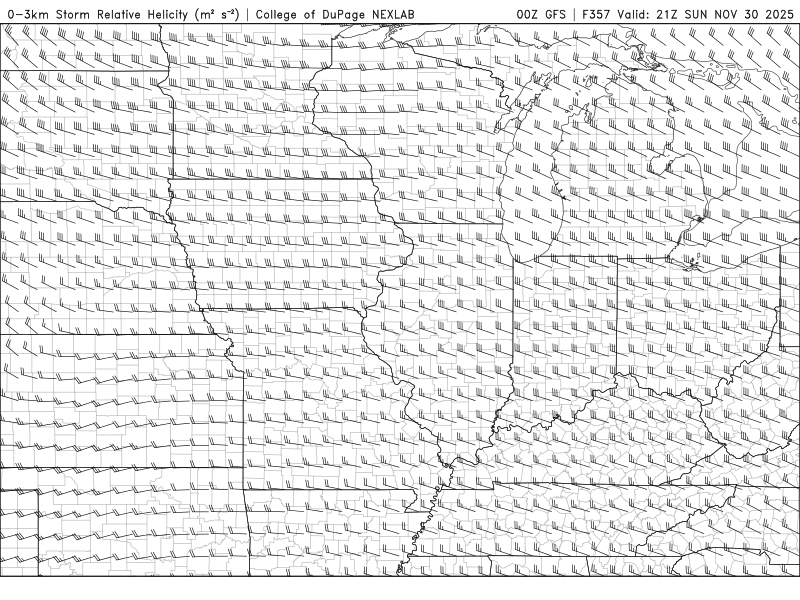 0–3km Storm Relative Helicity (m² s⁻²) | College of DuPage NEXLAB
00Z GFS | F357 Valid: 21Z SUN NOV 30 2025